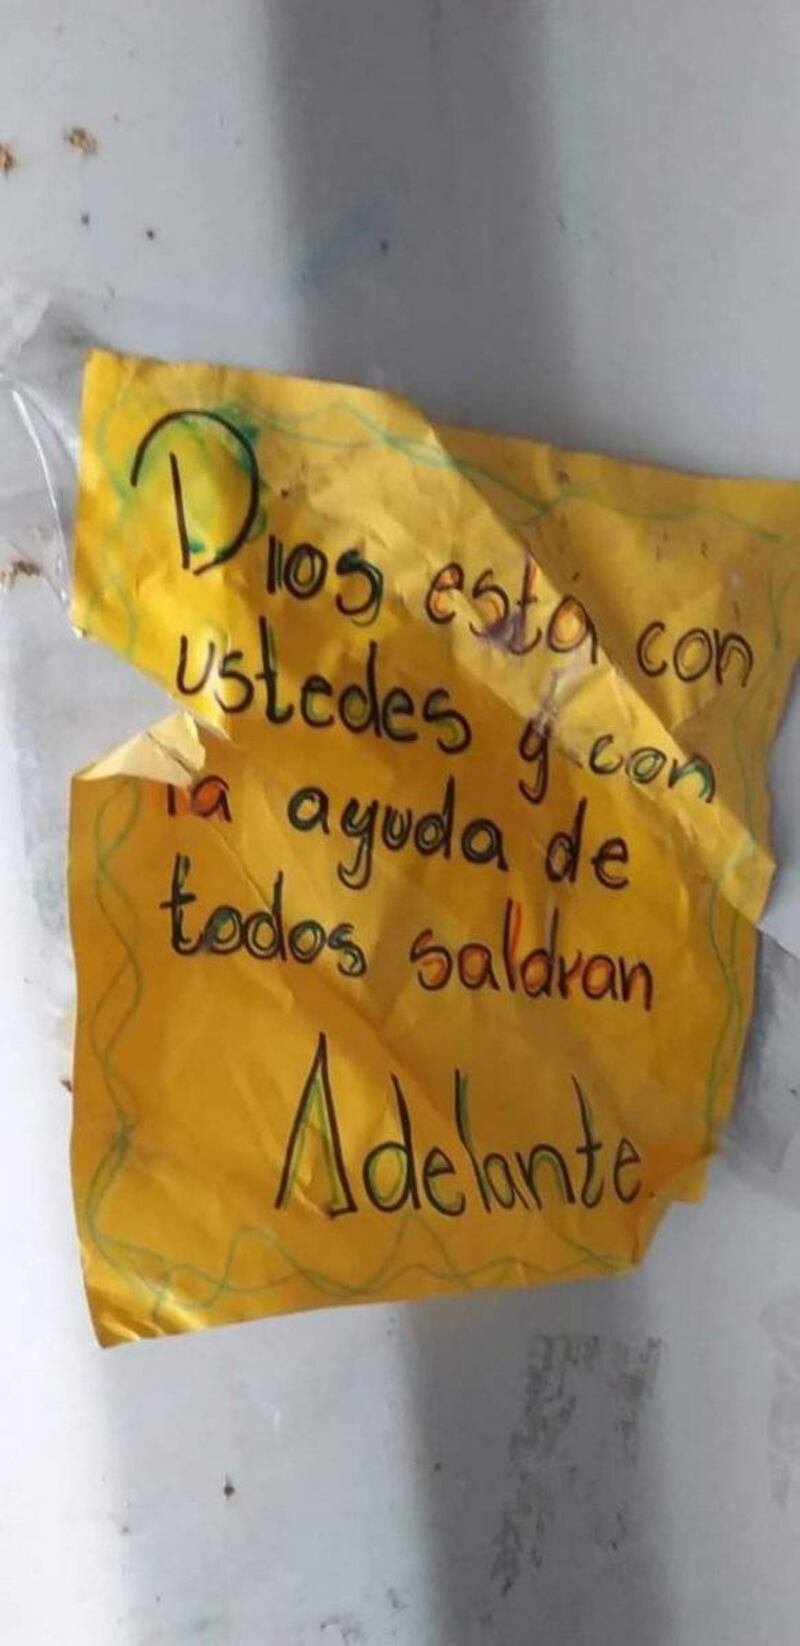 Dios esta con
ustedes y con
la ayuda de
todos saldran
Adelante.